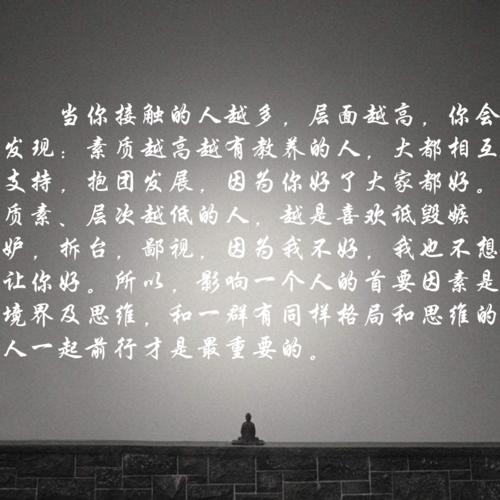 当你接触的人越多，层面越高，你会
发现：素质越高越有教养的人，大都相互
支持，抱团发展，因为你好了大家都好。
质素、层次越低的人，越是喜欢诋毁嫉
妒，拆台，鄙视，因为我不好，我也不想
让你好。所以，影响一个人的首要因素是
境界及思维，和一群有同样格局和思维的
人一起前行才是最重要的。